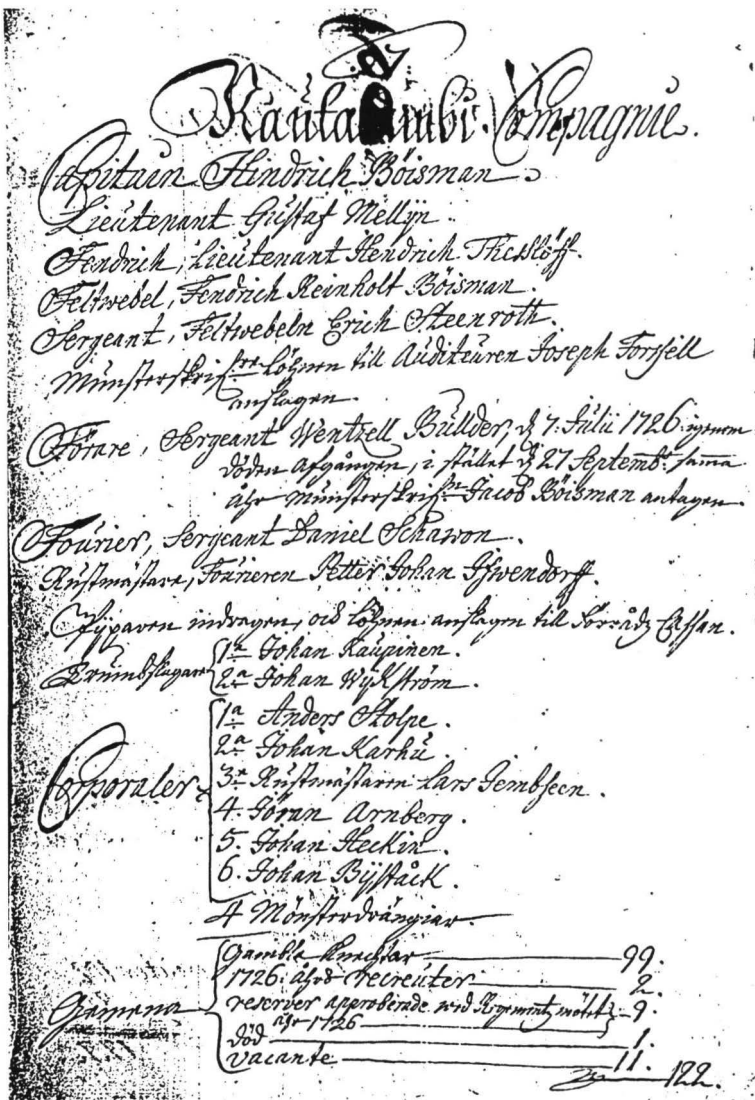 Rautalambi Compagnie.
Capitain Hindrich Böisman
Lieutenant Gustaf Mellijn.
Fendrich, Lieutenant Hendrich Thesslöff.
Feltwebel, Fendrich Reinholt Böisman.
Sergeant, Feltwebeln Erich Steenroth.
Munsterskrif:re löhnen till Auditeuren Joseph Forssell
anslagen.
Förare, Sergeant Wentzell Büllder, d 7. Julii 1726 igenom
döden afgången, i stället d 27 Septemb: samma
åhr munsterskrif:re Jacob Böisman antagen.
Fourier, Sergeant Daniel Schawon.
Rustmästare, Fourieren Petter Johan
Pijparen indragen, och löhnen anslagen till Förrådz Cassan.
Trumbslagare
1a Johan Kaupinen.
2a Johan Wijkström.
Corporaler
1a Anders Stolpe.
2a Johan Karhu.
3a Rustmästaren Lars
4. Jöran Arnberg.
5. Johan Heckin.
6. Johan Bijståck.
4 Mönsterdrängiar.
Gemena
Gamble Knechtar 99.
1726 åhrs recreuter 2.
reserver approberade wid Regementz mötet 9.
åhr 1726
död 1.
vacante 11.
122.